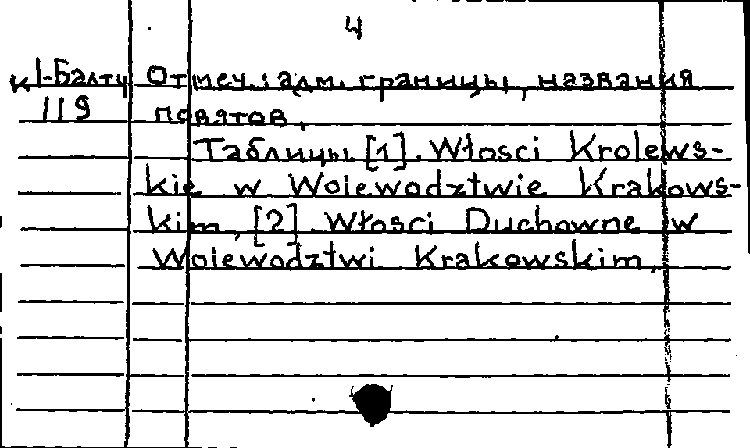 4
К1-Балты Отмеч.: адм. границы, названия
119 поватов.
Таблицы [1]. Włosci Krolews-
kie w Wolewodztwie Krakows-
kim, [2] Włosci Duchowne w
Wolewodztwi Krakowskim.